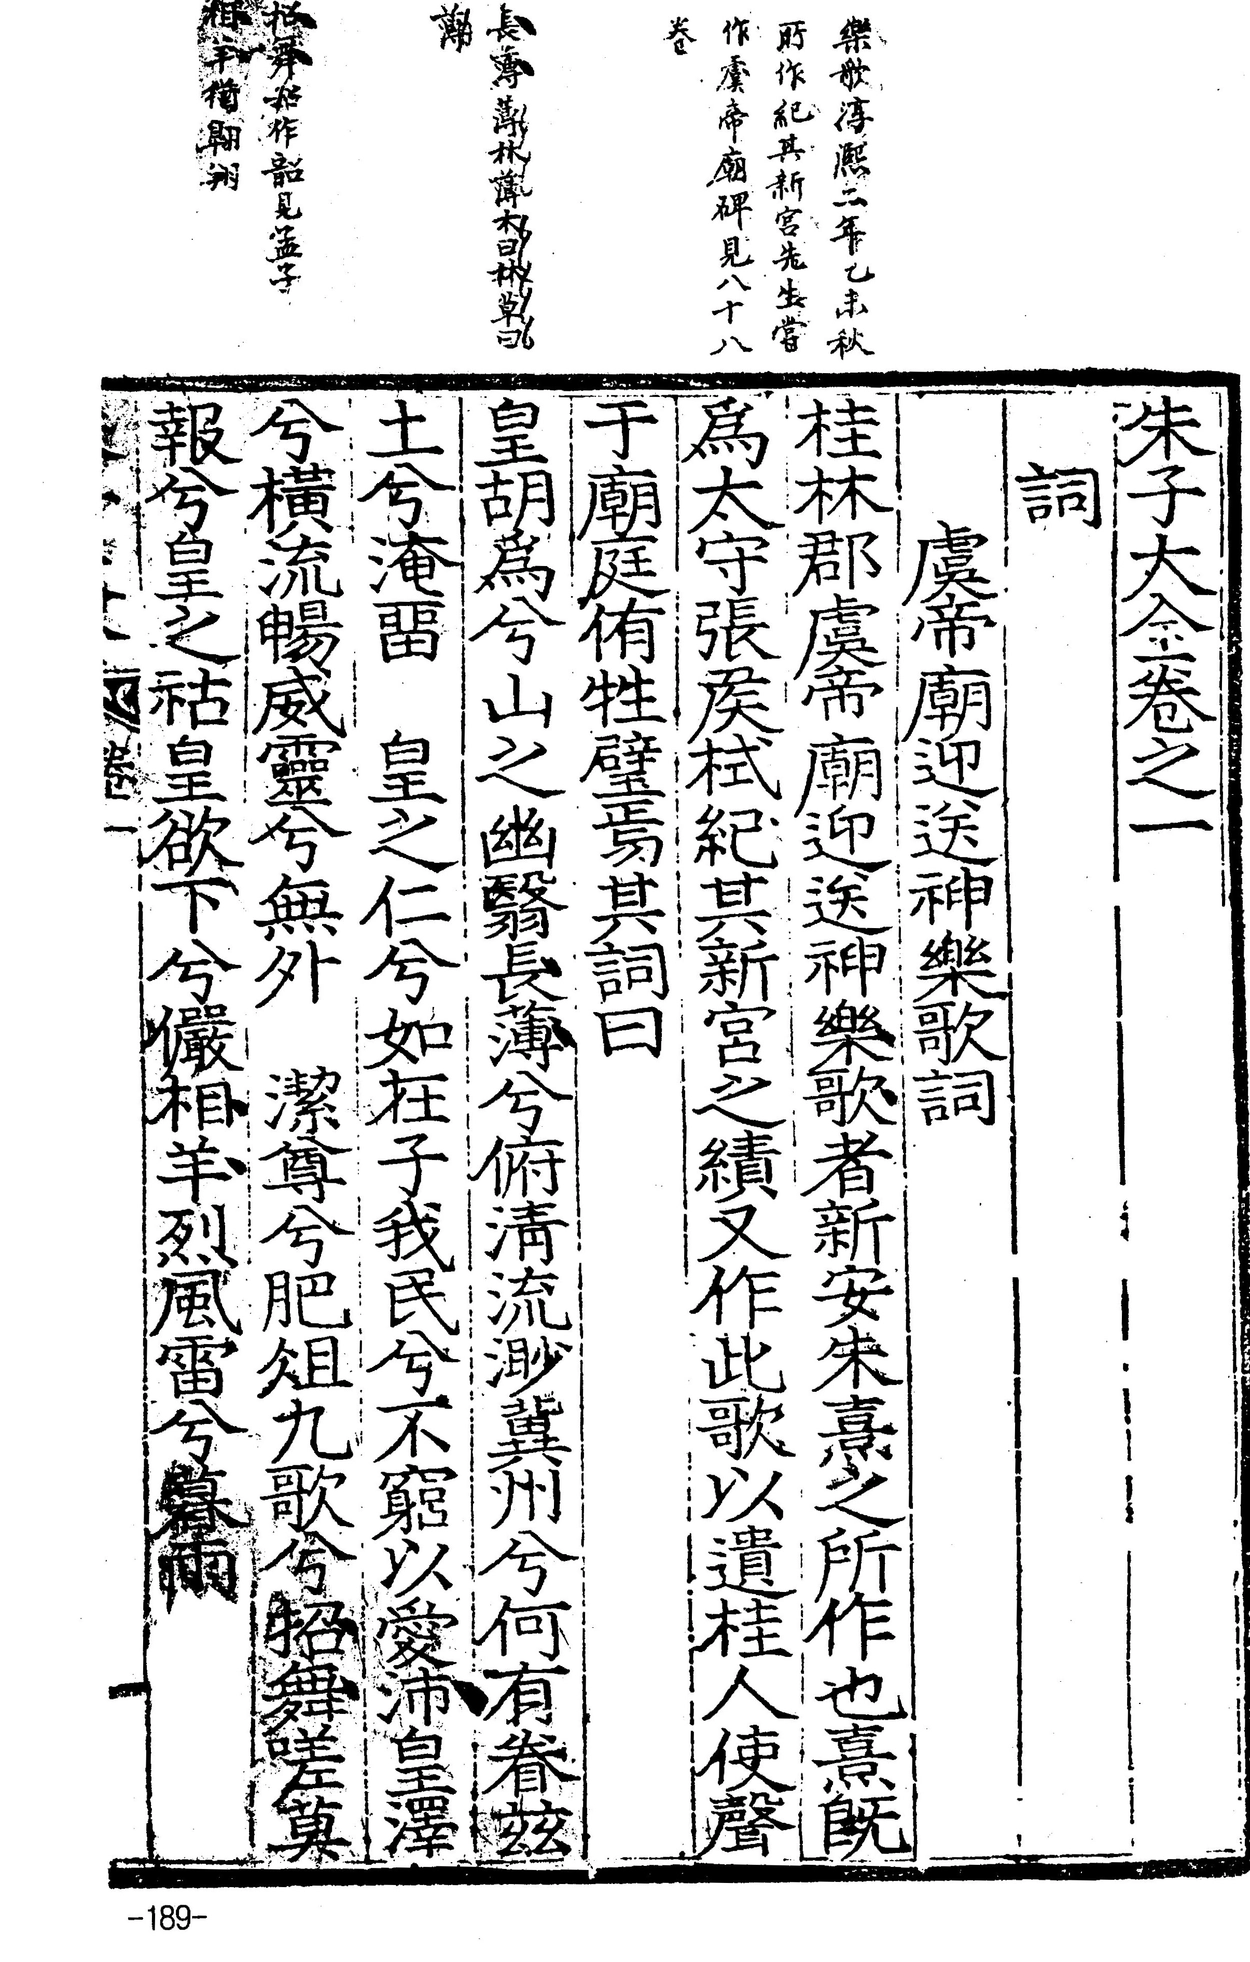 樂歌淳熙二年乙未秋
所作紀其新宮先生嘗
作虞帝廟碑見八十八
卷
長薄薄林薄木曰林草曰
薄
招舞招作韶見孟子
相羊猶翶翔
朱子大全卷之一
詞
虞帝廟迎送神樂歌詞
桂林郡虞帝廟迎送神樂歌者新安朱熹之所作也熹旣
爲太守張矦栻紀其新宮之績又作此歌以遺桂人使聲
于廟庭侑牲璧焉其詞曰
皇胡爲兮山之幽翳長薄兮俯淸流渺冀州兮何有眷茲
土兮淹留　皇之仁兮如在子我民兮不窮以愛沛皇澤
兮橫流暢威靈兮無外　潔尊兮肥俎九歌兮招舞嗟莫
報兮皇之祜皇欲下兮儼相羊烈風雷兮暮雨
卷一
-189-